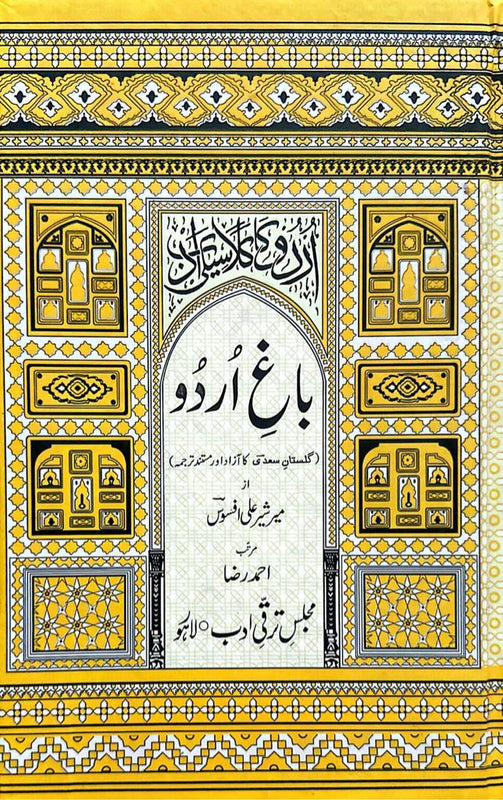 اُردو کا کلاسیکی ادب
باغِ اُردُو
(گلستانِ سعدیؔ کا آزاد اور مستند ترجمہ)
از
میر شیر علی افسوسؔ
مرتبہ
احمد رضا
مجلسِ ترقیِ ادب ○ لاہور